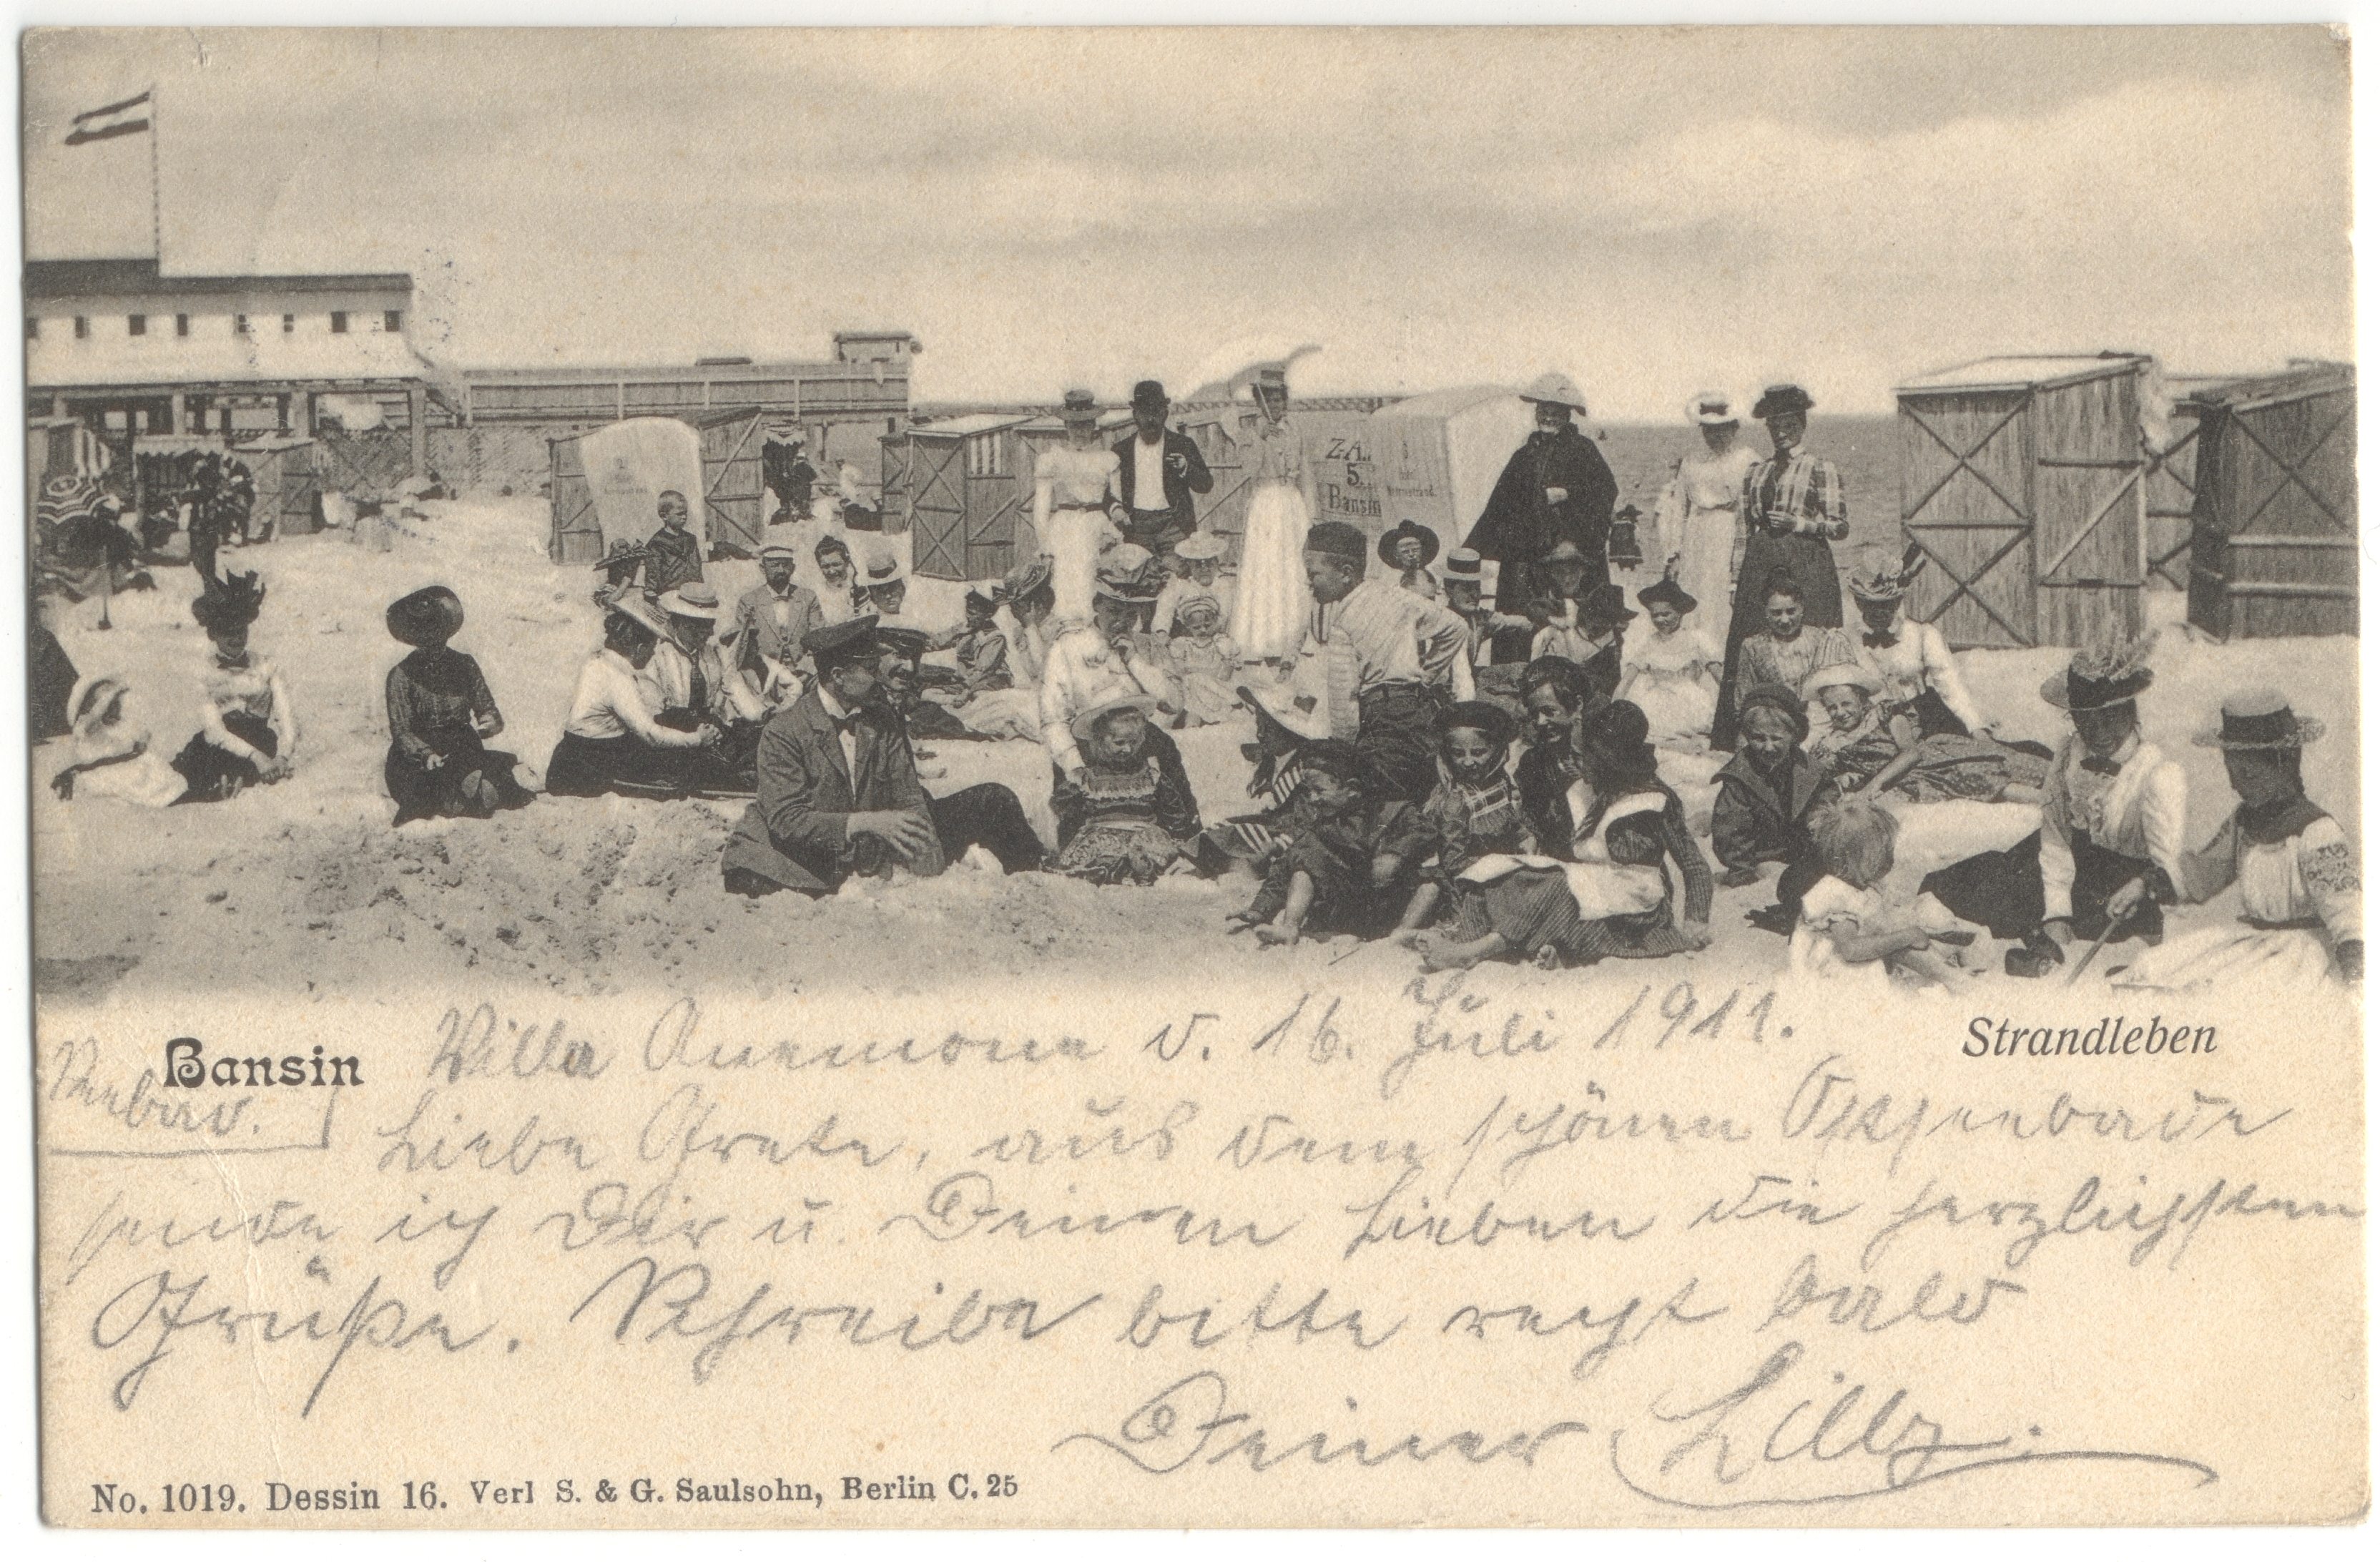 Z.A..
5.
Bansin
Bansin
Strandleben
Villa Anemone d. 16. Juli 1911.
Seebad.
Liebe Grete, aus dem schönen Ostseebade
sende ich Dir u. Deinen Lieben die herzlichsten
Grüße. Schreibe bitte recht bald
Deiner Lilly.
No. 1019. Dessin 16. Verl S. & G. Saulsohn, Berlin C. 25